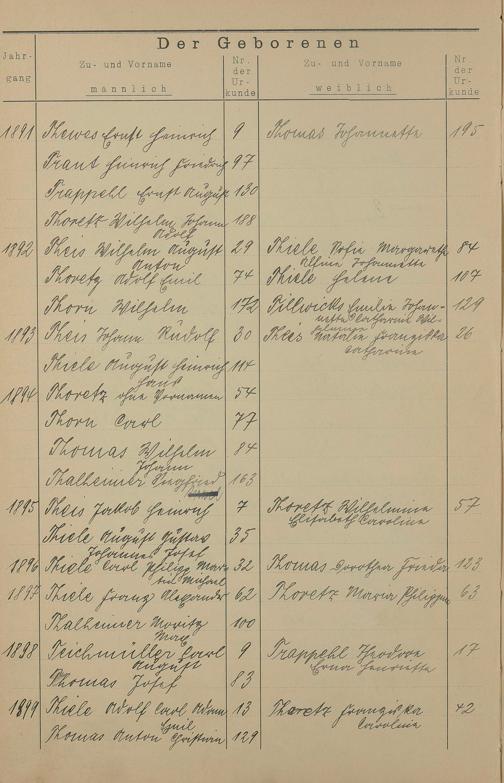 Der Geborenen
Jahr- gang
Zu- und Vorname männlich
Nr. der Ur- kunde
Zu- und Vorname weiblich
Nr. der Ur- kunde
1891 Thewes Ernst Heinrich 9 Thomas Johannette 195
Traut Heinrich Friedrich 97
Trappehl Ernst August 130
Thoretz Wilhelm Johann 188
Adolf
1892 Theis Wilhelm August 29 Thiele Sofie Margarethe 84
Anton Johannette
Thoretz Adolf Emil 74 Thiele Helene 107
Thorn Wilhelm 172 Emilie Johan- 129
nette Catharine
1893 Theis Johann Rudolf 30 Theis Natalie Franziska 26
Catharine
Thiele August Heinrich 114
Hans
1894 Thoretz ohne Vornamen 54
Thorn Carl 77
Thomas Wilhelm 84
Johann
Thalheimer Siegfried 163
1895 Theis Jakob Heinrich 7 Thoretz Wilhelmine 57
Elisabeth Caroline
Thiele August Gustav 35
Johannes Josef
1896 Thiele Carl Philipp 32 Thomas Dorothea Frieda 123
Michael
1897 Thiele Franz Alexander 62 Thoretz Maria Philippine 63
Thalheimer Moritz 100
Max
1898 Teichmüller Carl 9 Trappehl Theodore 17
August Erna Henriette
Thomas Josef 83
1899 Thiele Adolf Carl Adam 13 Thoretz Franziska 42
Emil Caroline
Thomas Anton Christian 129